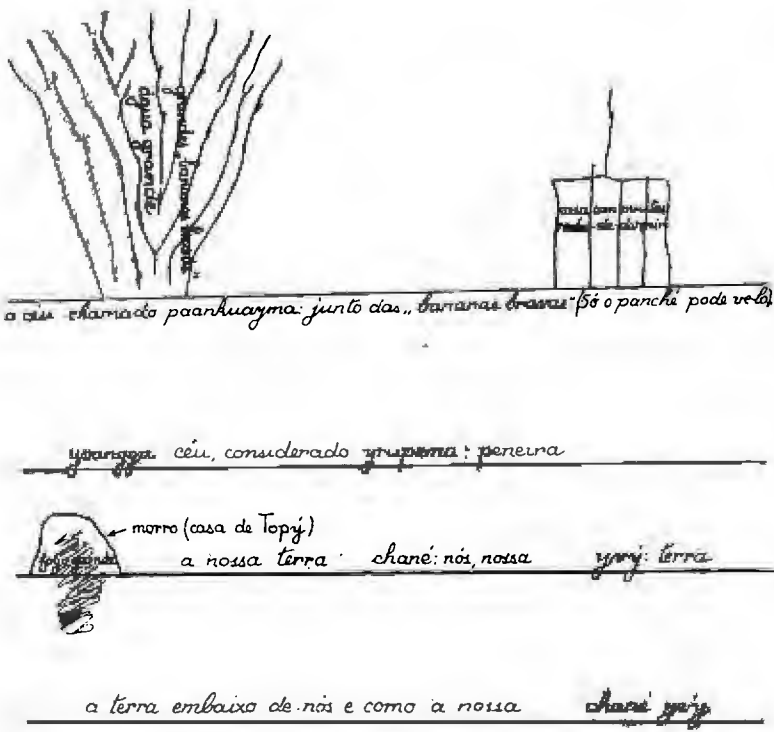 bananas bravas
a céu chamado paankuayma: junto das „bananas bravas" (Só o panché pode vê-lo).
céu, considerado yrupema: peneira
morro (casa de Topý)
a nossa terra chané: nós, nossa ywý: terra
a terra embaixo de nós e como a nossa chané ywý